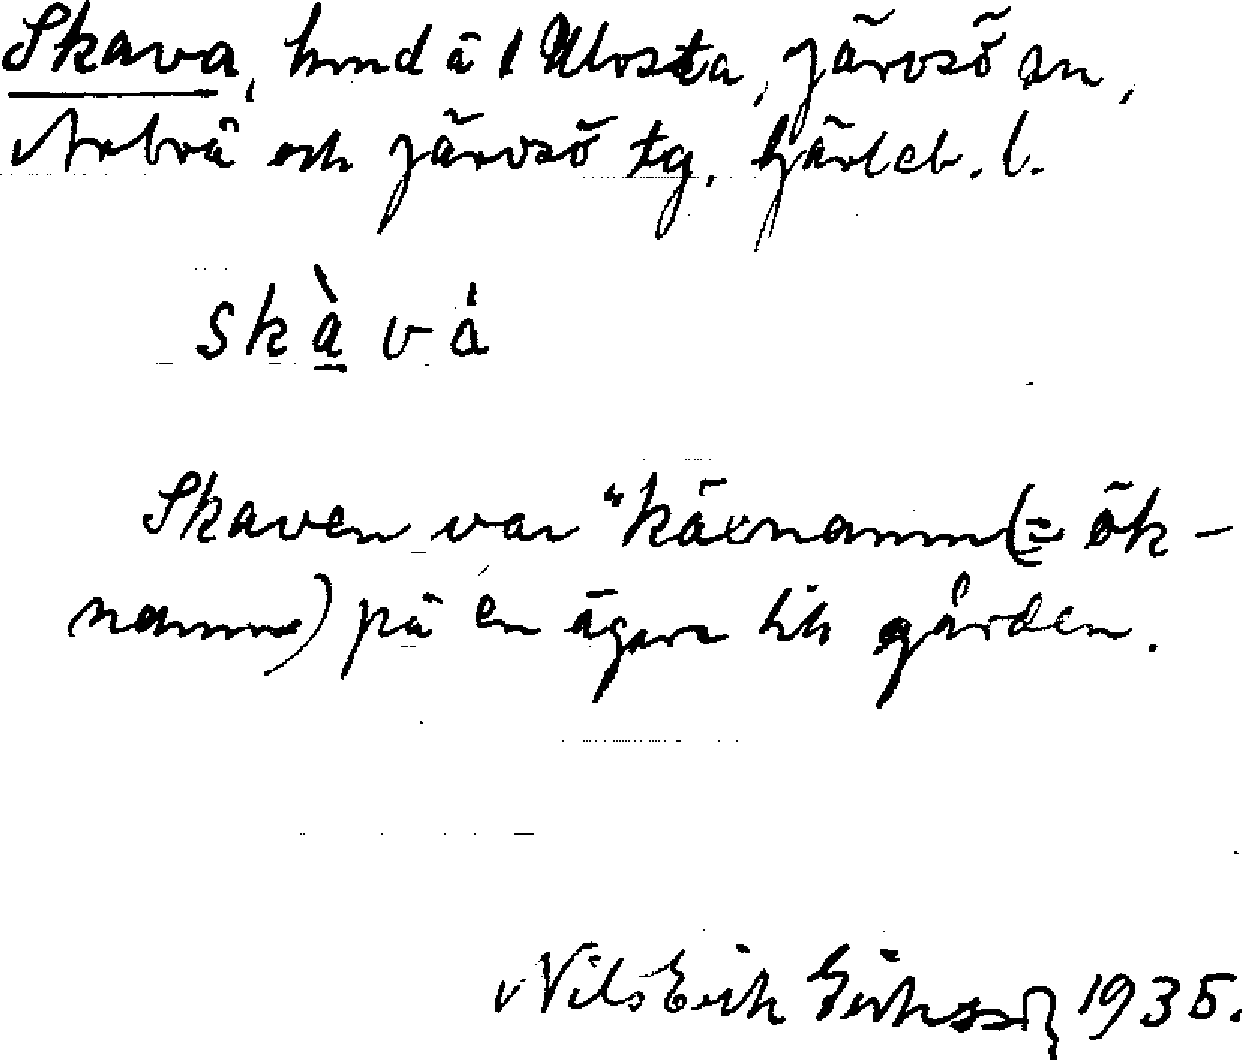 Skava, hmd å 1 Ulvsta, Järvsö sn,
Arbrå och Järvsö tg. Gävleb. l.
skàvá
Skaven var "käxnamn (= ök-
namn) på en ägare till gården.
Nils Erik Eriksson 1935.